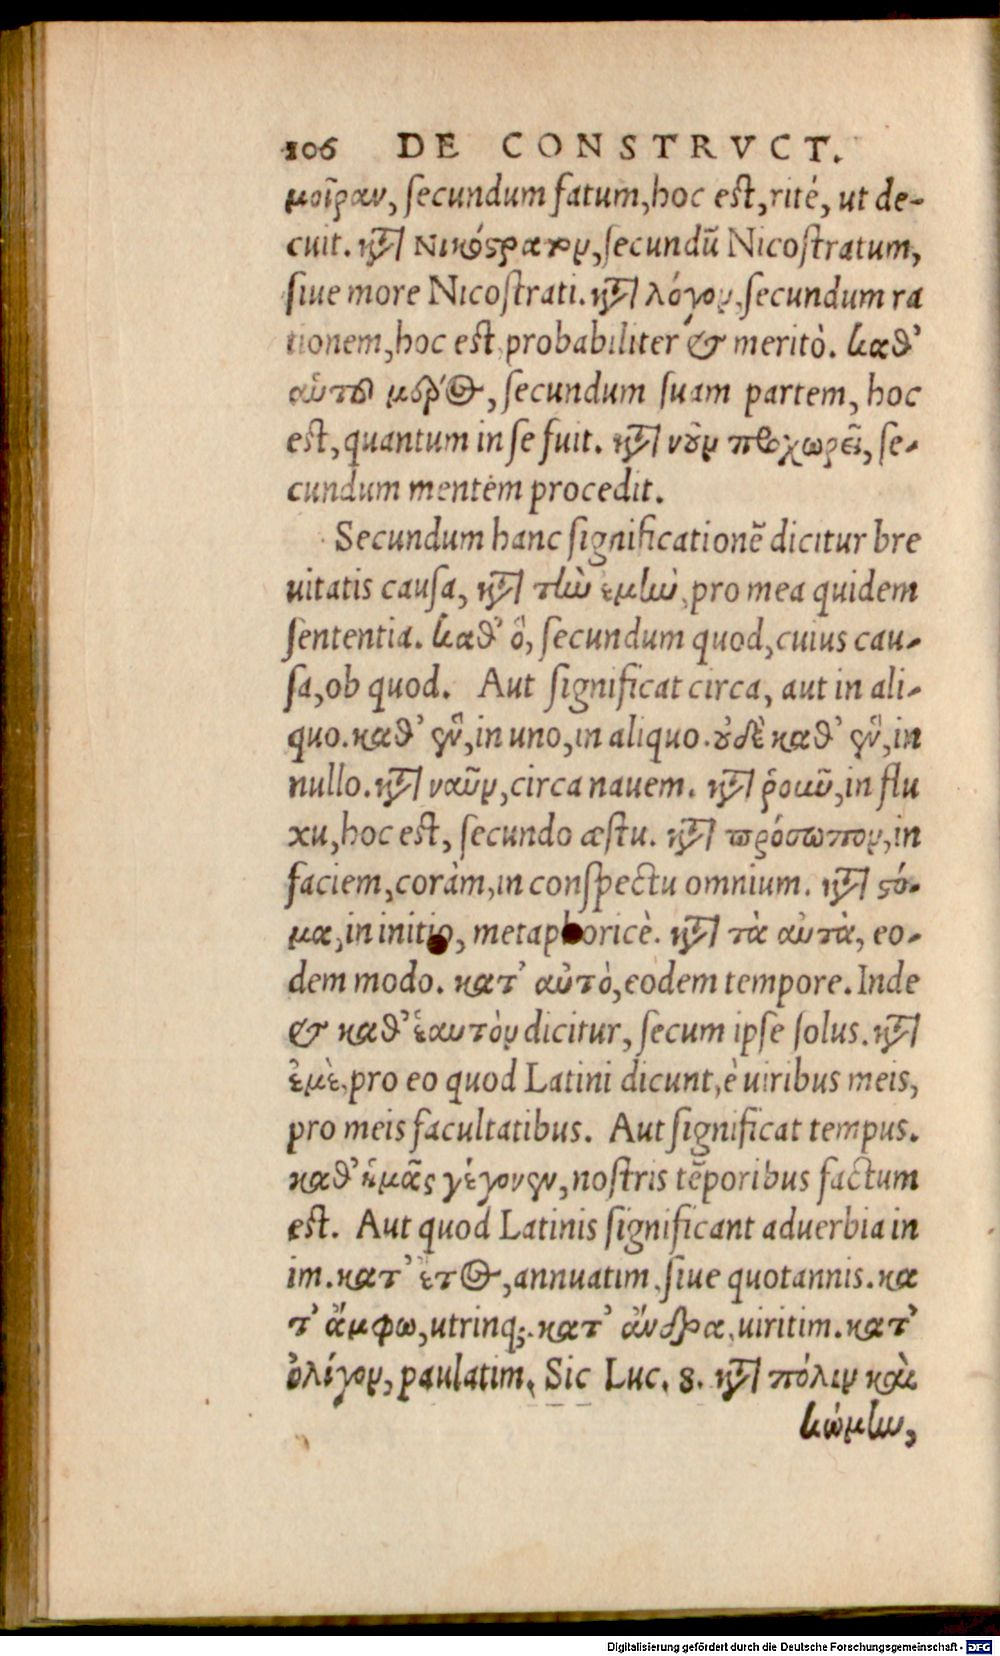 106 DE CONSTRVCT.
μοῖραν, secundum fatum, hoc est, rité, ut de-
cuit. κατὰ Νικόστρατον, secundũ Nicostratum,
siue more Nicostrati. κατὰ λόγον, secundum ra
tionem, hoc est, probabiliter & meritò. καθ᾽
αὑτοῦ μέρος, secundum suam partem, hoc
est, quantum in se fuit. κατὰ νοῦν προχωρεῖ, se-
cundum mentem procedit.
Secundum hanc significationẽ dicitur bre
uitatis causa, κατὰ τὴν ἐμὴν, pro mea quidem
sententia. καθ᾽ ὃ, secundum quod, cuius cau-
sa, ob quod. Aut significat circa, aut in ali-
quo. καθ᾽ ἓν, in uno, in aliquo. οὐδὲ καθ᾽ ἓν, in
nullo. κατὰ ναῦν, circa nauem. κατὰ ῥοῦν, in flu
xu, hoc est, secundo æstu. κατὰ πρόσωπον, in
faciem, coràm, in conspectu omnium. κατὰ στό-
μα, in initio, metaphoricè. κατὰ τὰ αὐτὰ, eo-
dem modo. κατ᾽ αὐτὸ, eodem tempore. Inde
& καθ᾽ ἑαυτὸν dicitur, secum ipse solus. κατὰ
ἐμὲ, pro eo quod Latini dicunt, è uiribus meis,
pro meis facultatibus. Aut significat tempus.
καθ᾽ ἡμᾶς γέγονεν, nostris tẽporibus factum
est. Aut quod Latinis significant aduerbia in
im. κατ᾽ ἔτος, annuatim, siue quotannis. κα
τ᾽ ἄμφω, utrinq;. κατ᾽ ἄνδρα, uiritim. κατ᾽
ὀλίγον, paulatim. Sic Luc. 8. κατὰ πόλιν καὶ
κώμην,
Digitalisierung gefördert durch die Deutsche Forschungsgemeinschaft - DFG